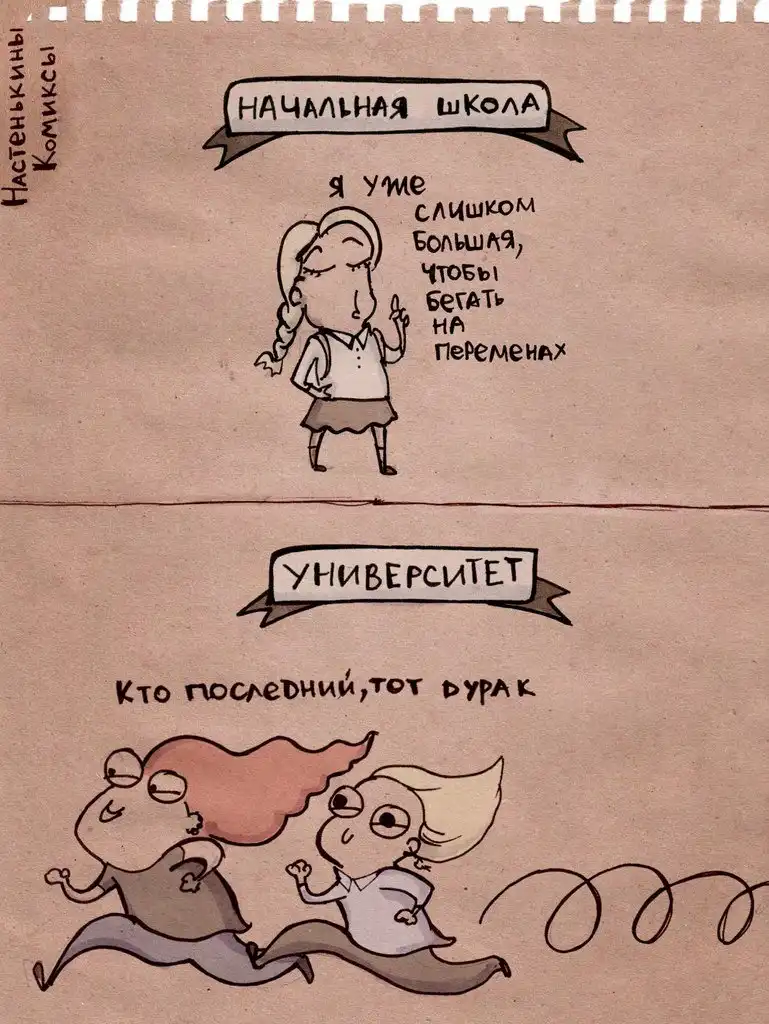 Настенькины
Комиксы
НАЧАЛЬНАЯ ШКОЛА
Я УЖЕ
СЛИШКОМ
БОЛЬШАЯ,
ЧТОБЫ
БЕГАТЬ
НА
ПЕРЕМЕНАХ
УНИВЕРСИТЕТ
КТО ПОСЛЕДНИЙ, ТОТ ДУРАК